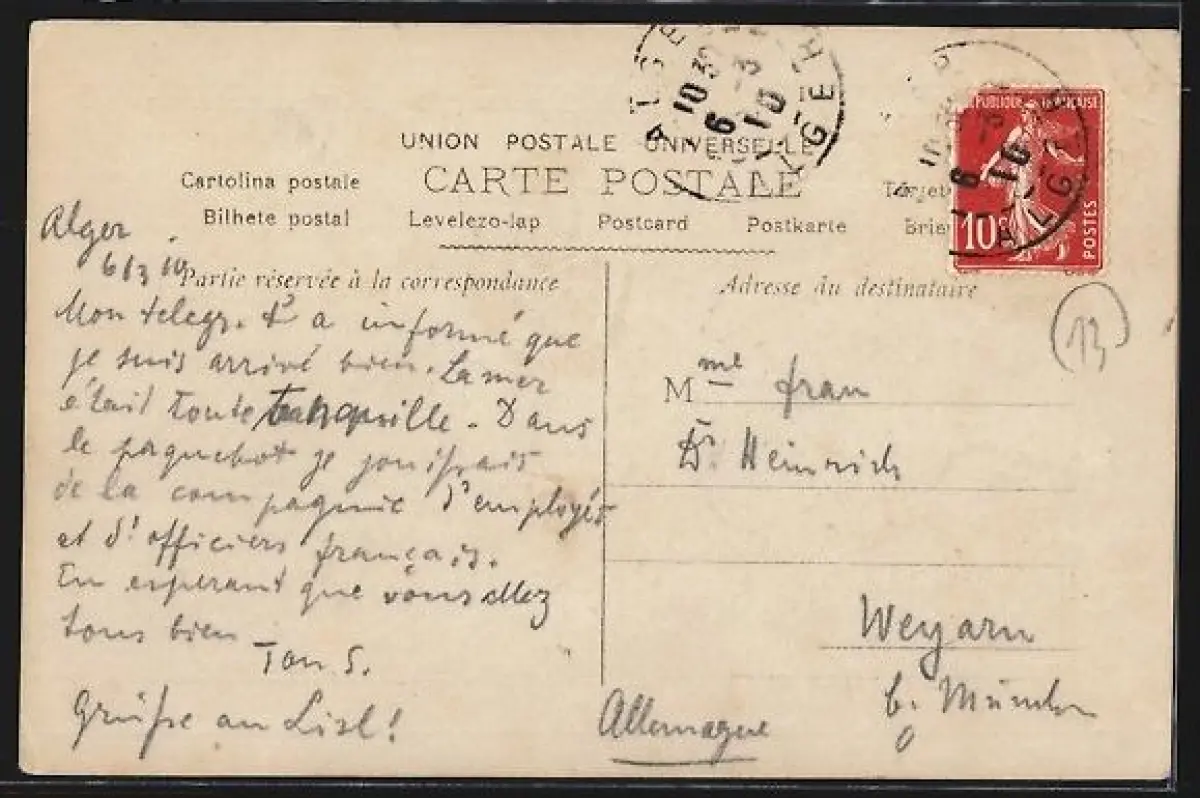 UNION POSTALE UNIVERSELLE
CARTE POSTALE
Cartolina postale
Bilhete postal Levelezo-lap Postcard Postkarte
Partie réservée à la correspondance
Adresse du destinataire
RÉPUBLIQUE FRANÇAISE
10c
POSTES
ALGER
10 30
6 -3
10
ALGER
6 -3
10
13
Alger
6/3 10
Mon telegr. t'a informé que
je suis arrivé bien. La mer
était toute tranquille. Dans
le paquebot je jouissais
de la compagnie d'employés
et d'officiers français.
En espérant que vous allez
tous bien
Ton S.
Grüße an Lisl!
Mme frau
Dr. Heinrich
Weyarn
b. München
Allemagne